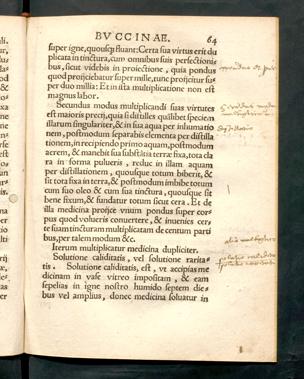 BVCCINAE. 64
super igne, quousq; fluant: Certa sua virtus erit du
plicata in tinctura, cum omnibus suis perfectioni
bus, sicut videbis in proiectione, quia pondus
quod proijciebatur super mille, tunc proijcitur su-
per duo millia: Et in ista multiplicatione non est
magnus labor.
Secundus modus multiplicandi suas virtutes
est maioris precij, quia si distilles quālibet speciem
illarum singulariter, & in sua aqua per inhumatio
nem, postmodum separabis elementa per distilla
tionem, in recipiendo primo aquam, postmodum
aerem, & manebit sua substātia terræ fixa, tota cla
ra in forma pulueris, reduc in illam aquam
per distillationem, quousque totum biberit, &
sit tota fixa in terra, & postmodum imbibe totum
cum suo oleo & cum sua tinctura, quousque sit
bene fixum, & fundatur totum sicut cera. Et de
illa medicina proijce vnum pondus super cor-
pus quod volueris conuertere, & inuenies cer-
te suam tincturam multiplicatam de centum parti
bus, per talem modum &c.
Iterum multiplicatur medicina dupliciter.
Solutione caliditatis, vel solutione rarita-
tis. Solutione caliditatis, est, vt accipias me
dicinam in vase vitreo impositam, & eam
sepelias in igne nostro humido septem die-
bus vel amplius, donec medicina soluatur in